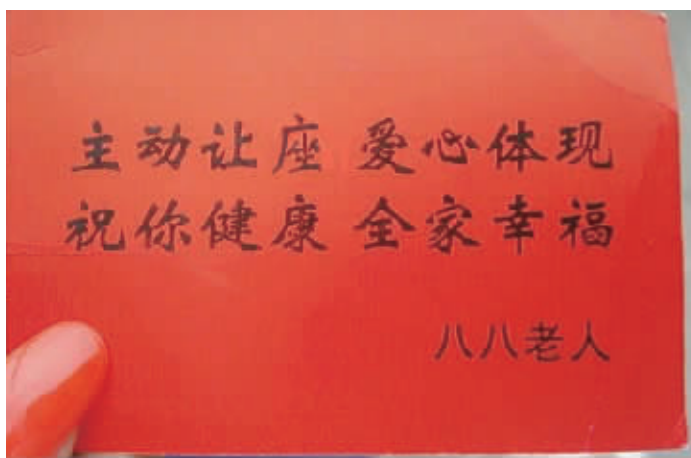 主动让座 爱心体现
祝你健康 全家幸福
八八老人